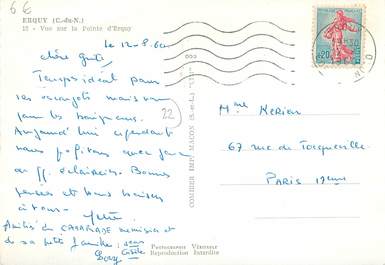 66
ERQUY (C.-du-N.)
15 - Vue sur la Pointe d'Erquy
Le 12-8.60
Chère
Temps idéal pour
les escargots mais non
pour les baigneurs.
Aujourd'hui cependant
nous profitons
de qq. éclaircies. Bonnes
pensées et bons baisers
à tous.
22
Amitiés du CAMARADE
de sa petite famille : Jean
Dany Cécile
COMBIER IMP. MACON (S.-et-L.) "CIM"
Photographie Véritable
Reproduction Interdite
0,20
Mme Kerian
67 rue de Tocqueville
PARIS 17ème